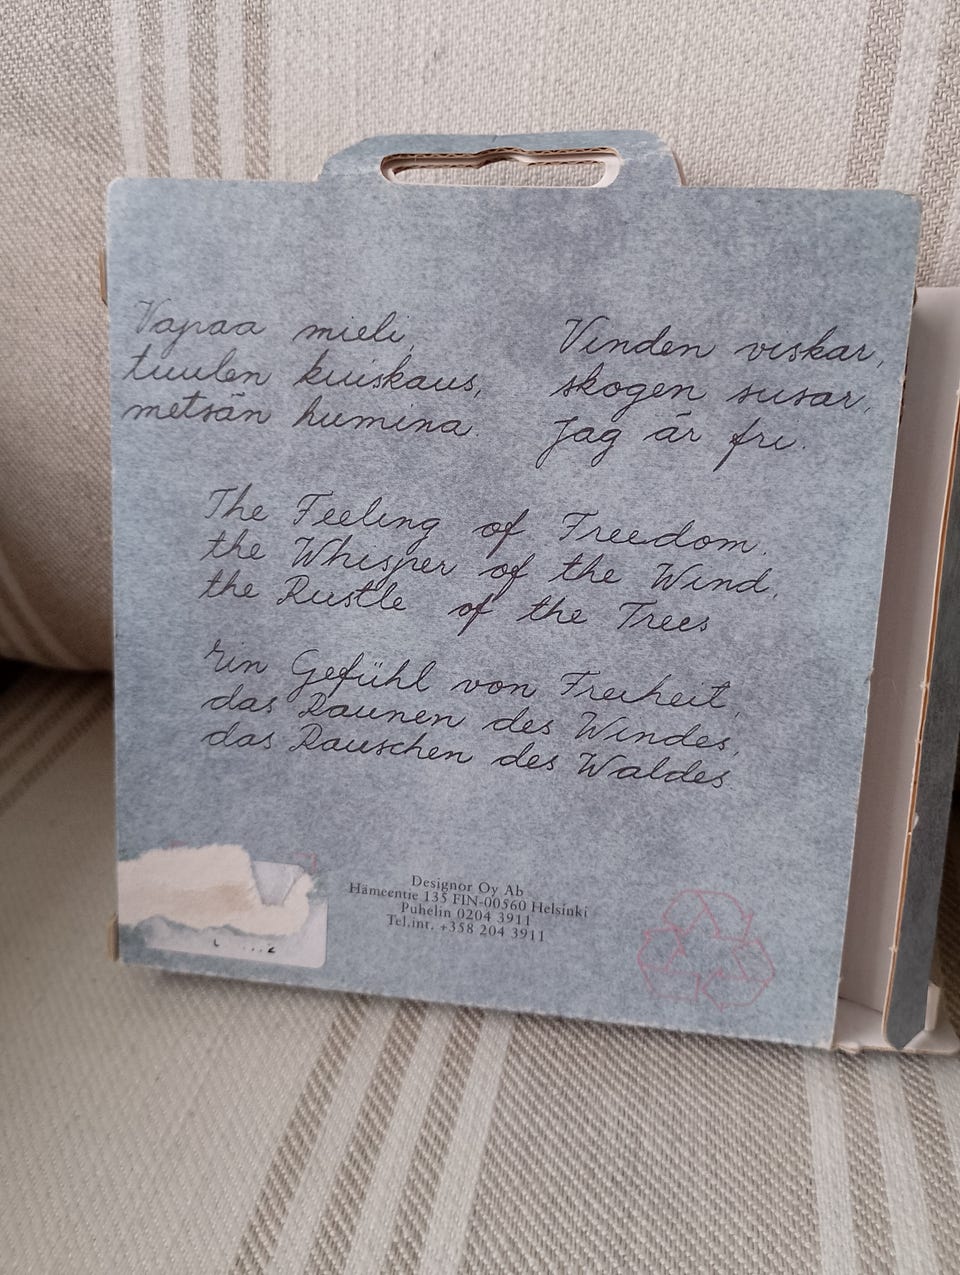 Vapaa mieli,
tuulen kuiskaus,
metsän humina.
Vinden viskar,
skogen susar,
Jag är fri.
The Feeling of Freedom,
the Whisper of the Wind,
the Rustle of the Trees
Ein Gefühl von Freiheit,
das Raunen des Windes,
das Rauschen des Waldes.
Designor Oy Ab
Hämeentie 135 FIN-00560 Helsinki
Puhelin 0204 3911
Tel.int. +358 204 3911